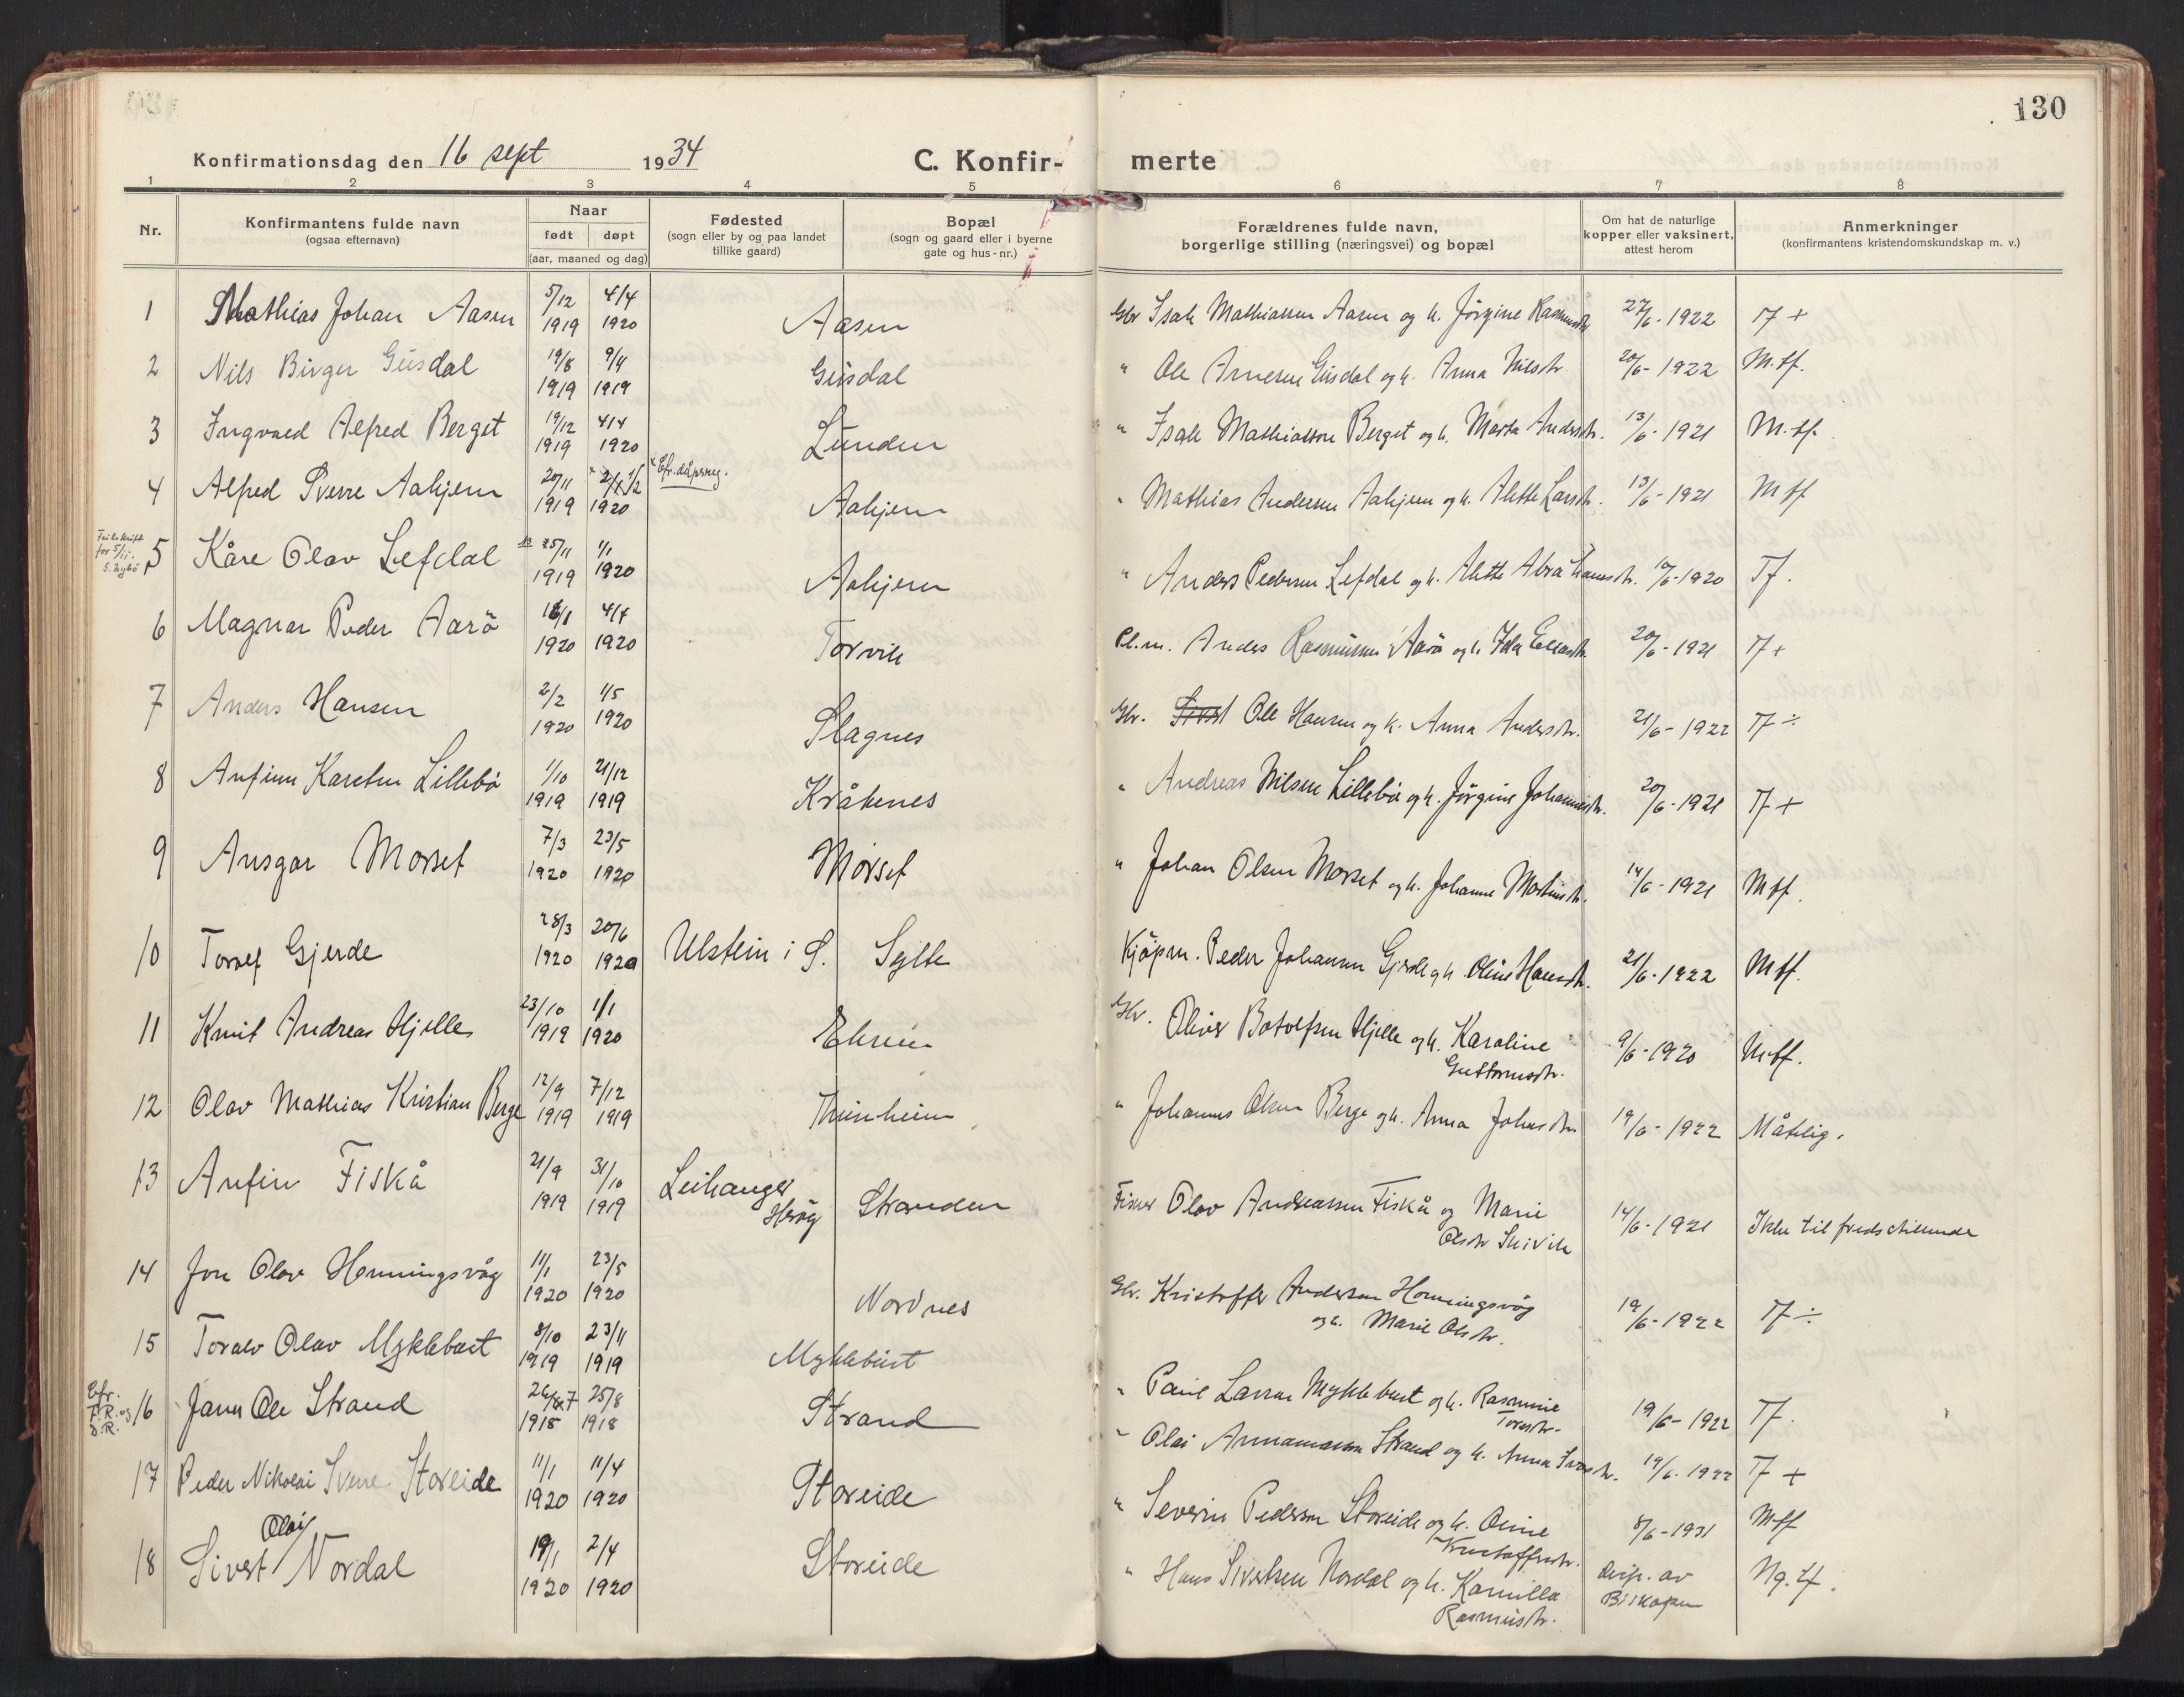 130
Konfirmationsdag den 16 sept 1934 C. Konfirmerte
1 2 3 4 5 6 7 8
Nr. Konfirmantens fulde navn (ogsaa efternavn) Naar født døpt (aar, maaned og dag) Fødested (sogn eller by og paa landet tillike gaard) Bopæl (sogn og gaard eller i byerne gate og hus-nr.) Forældrenes fulde navn, borgerlige stilling (næringsvei) og bopæl Om hat de naturlige kopper eller vaksinert, attest herom Anmerkninger (konfirmantens kristendomskundskap m. v.)
1 Mathias Johan Aasen 5/12 1919 4/4 1920 Aasen Gbr Isak Mathiassen Aasen og h. Jörgine Rasmusdtr 27/6-1922 Tf +
2 Nils Birger Gusdal 19/8 1919 9/11 1919 Gusdal " Ole Arnesen Gusdal og h. Anna Nilsdtr. 20/6-1922 M.tf.
3 Ingvald Alfred Berget 19/12 1919 4/4 1920 Lunden " Isak Mathiassen Berget og h. Marta Andersdtr. 13/6-1921 M.tf.
4 Alfred Sverre Aahjem 20/11 1919 1/2 1920 x Cfr. dåpsreg. Aahjem " Mathias Andersen Aahjem og h. Alette Larsdtr. 13/6-1921 M tf
5 Kåre Olav Lefdal 25/11 1919 1/1 1920 Aahjem " Anders Pedersen Lefdal og h. Alette Abrahamsdtr. 10/6-1920 Tf.
6 Magnar Peder Aarö 16/1 1920 4/4 1920 Torvik Pl.m. Anders Rasmussen Aarö og h. Ida Eliasdtr. 20/6-1921 Tf +
7 Anders Hansen 2/2 1920 1/5 1920 Slagnes Gbr. Sivert Ole Hansen og h. Anna Andersdtr. 21/6-1922 Tf ÷
8 Anfinn Karsten Lillebö 1/10 1919 21/12 1919 Kråkenes " Andreas Nilsen Lillebö og h. Jörgine Johannesdtr. 20/6-1921 Tf +
9 Ansgar Morset 7/3 1920 23/5 1920 Morset " Johan Olsen Morset og h. Johanne Martinsdtr. 14/6-1921 M tf.
10 Toralf Gjerde 28/3 1920 20/6 1920 Ulstein i S. Sylte Kjöpm. Peder Johansen Gjerde og h. Oline Hansdtr. 21/6-1922 M tf.
11 Knut Andreas Hjelle 23/10 1919 1/1 1920 Ekrem Gbr. Oliver Botolfsen Hjelle og h. Karoline
Guttormsdtr. 9/6-1920 M.tf.
12 Olav Mathias Kristian Berge 12/9 1919 7/12 1919 Thunheim " Johannes Olsen Berge og h. Anna Johansdtr. 19/6-1922 Måtelig.
13 Anfin Fiskå 21/9 1919 31/10 1919 Leikanger
Heröy Stranden Fisker Olav Andreassen Fiskå og Marie
Olsdtr Skivik 14/6-1921 Ikke tilfredsstillende
14 Jon Olav Honningsvåg 11/1 1920 23/5 1920 Nordnes Gbr. Kristoffer Andersen Honningsvåg
og h. Marie Olsdtr. 19/6-1922 Tf ÷
15 Toralv Olav Myklebust 8/10 1919 23/11 1919 Myklebust " Paul Larsen Myklebust og h. Rasmine
Toresdtr. 19/6-1922 Tf.
Cfr. F.R. og D.R. 16 Jann Ole Strand 26/7 1918 25/8 1918 Strand " Olai Annanassen Strand og h. Anna Ivarsdtr. 19/6-1922 Tf +
17 Peder Nikolai Sverre Storeide 11/1 1920 11/4 1920 Storeide " Severin Pedersen Storeide og h. Oline
Kristoffersdtr. 8/6-1931 M tf
18 Sivert Olai Nordal 19/1 1920 2/4 1920 Storeide " Hans Sivertsen Nordal og h. Kamilla
Rasmusdtr. disp. av
Biskopen Ng. tf.